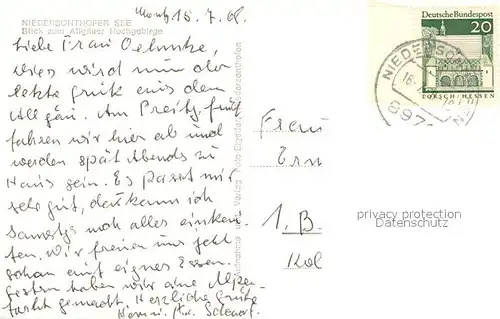 Montg 15.7.68.
NIEDERSONTHOFER SEE
Blick zum Allgäuer Hochgebirge
Liebe Frau Oelmke,
dies wird nun der
letzte Gruß aus dem
Allgäu. Am Freitg. früh
fahren wir hier ab und
werden spät Abends zu
Haus sein. Es passt mir
sehr gut, dann kann ich
Samstgs noch alles einkau-
fen. Wir freuen uns jetzt
schon auf eignes Essen.
Gestern haben wir eine Alpen-
fahrt gemacht. Herzliche Grüße
Deutsche Bundespost
20
LORSCH/HESSEN
NIEDERSO
897
Frau
Ern
1. B.
Köl
privacy protection
Datenschutz